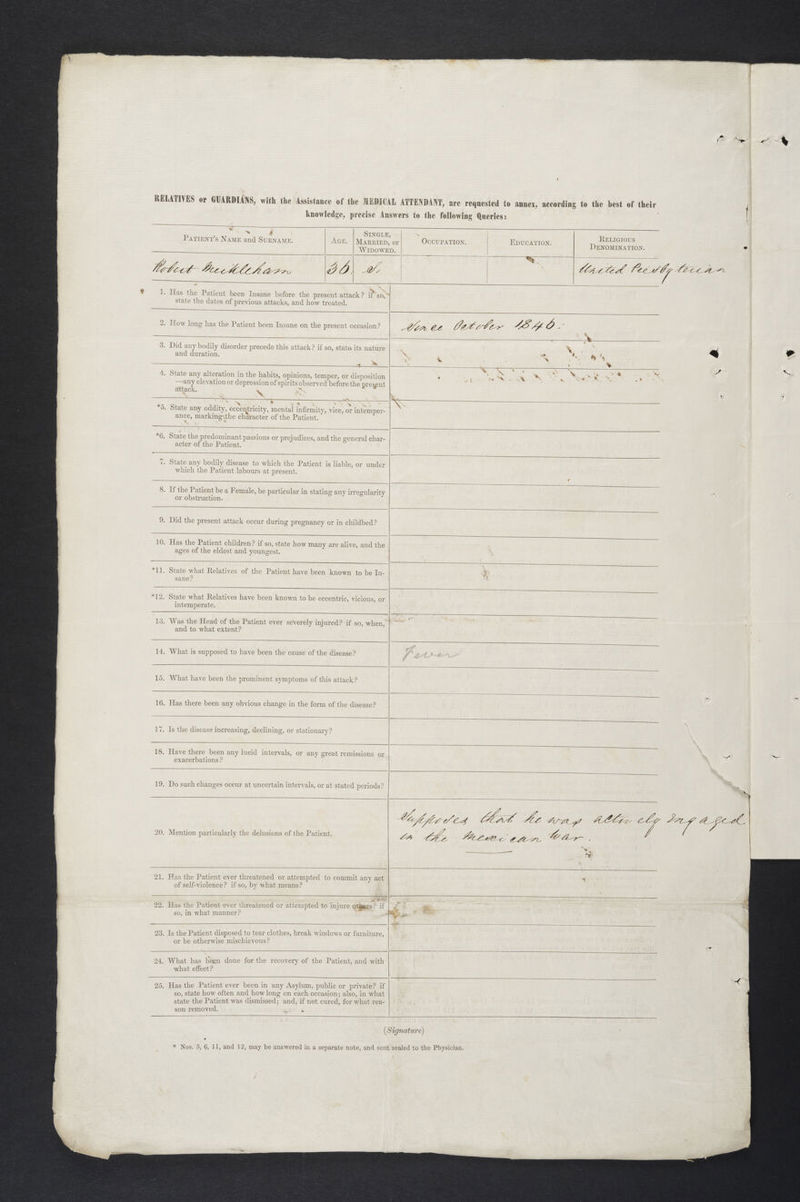 RELATIVES or GUARDIANS, with the Assistance of the MEDICAL ATTENDANT, are requested to annex, according to the best of their
knowledge, precise Answers to the following Queries:
PATIENT'S NAME and SURNAME.
AGE.
SINGLE, MARRIED, or WIDOWED.
OCCUPATION.
EDUCATION.
RELIGIOUS DENOMINATION.
Robert Muckleham
36
S.
United Presbyterian
1. Has the Patient been Insane before the present attack? if so,
state the dates of previous attacks, and how treated.
2. How long has the Patient been Insane on the present occasion?
Since October 1846.
3. Did any bodily disorder precede this attack? if so, state its nature
and duration.
4. State any alteration in the habits, opinions, temper, or disposition
—any elevation or depression of spirits observed before the present
attack.
*5. State any oddity, eccentricity, mental infirmity, vice, or intemper-
ance, marking the character of the Patient.
*6. State the predominant passions or prejudices, and the general char-
acter of the Patient.
7. State any bodily disease to which the Patient is liable, or under
which the Patient labours at present.
8. If the Patient be a Female, be particular in stating any irregularity
or obstruction.
9. Did the present attack occur during pregnancy or in childbed?
10. Has the Patient children? if so, state how many are alive, and the
ages of the eldest and youngest.
*11. State what Relatives of the Patient have been known to be In-
sane?
*12. State what Relatives have been known to be eccentric, vicious, or
intemperate.
13. Was the Head of the Patient ever severely injured? if so, when,
and to what extent?
14. What is supposed to have been the cause of the disease?
Fever
15. What have been the prominent symptoms of this attack?
16. Has there been any obvious change in the form of the disease?
17. Is the disease increasing, declining, or stationary?
18. Have there been any lucid intervals, or any great remissions or
exacerbations?
19. Do such changes occur at uncertain intervals, or at stated periods?
20. Mention particularly the delusions of the Patient.
Supposes that he was actively engaged
in the Mexican War.
21. Has the Patient ever threatened or attempted to commit any act
of self-violence? if so, by what means?
22. Has the Patient ever threatened or attempted to injure others? if
so, in what manner?
23. Is the Patient disposed to tear clothes, break windows or furniture,
or be otherwise mischievous?
24. What has been done for the recovery of the Patient, and with
what effect?
25. Has the Patient ever been in any Asylum, public or private? if
so, state how often and how long on each occasion; also, in what
state the Patient was dismissed; and, if not cured, for what rea-
son removed.
(Signature)
* Nos. 5, 6, 11, and 12, may be answered in a separate note, and sent sealed to the Physician.